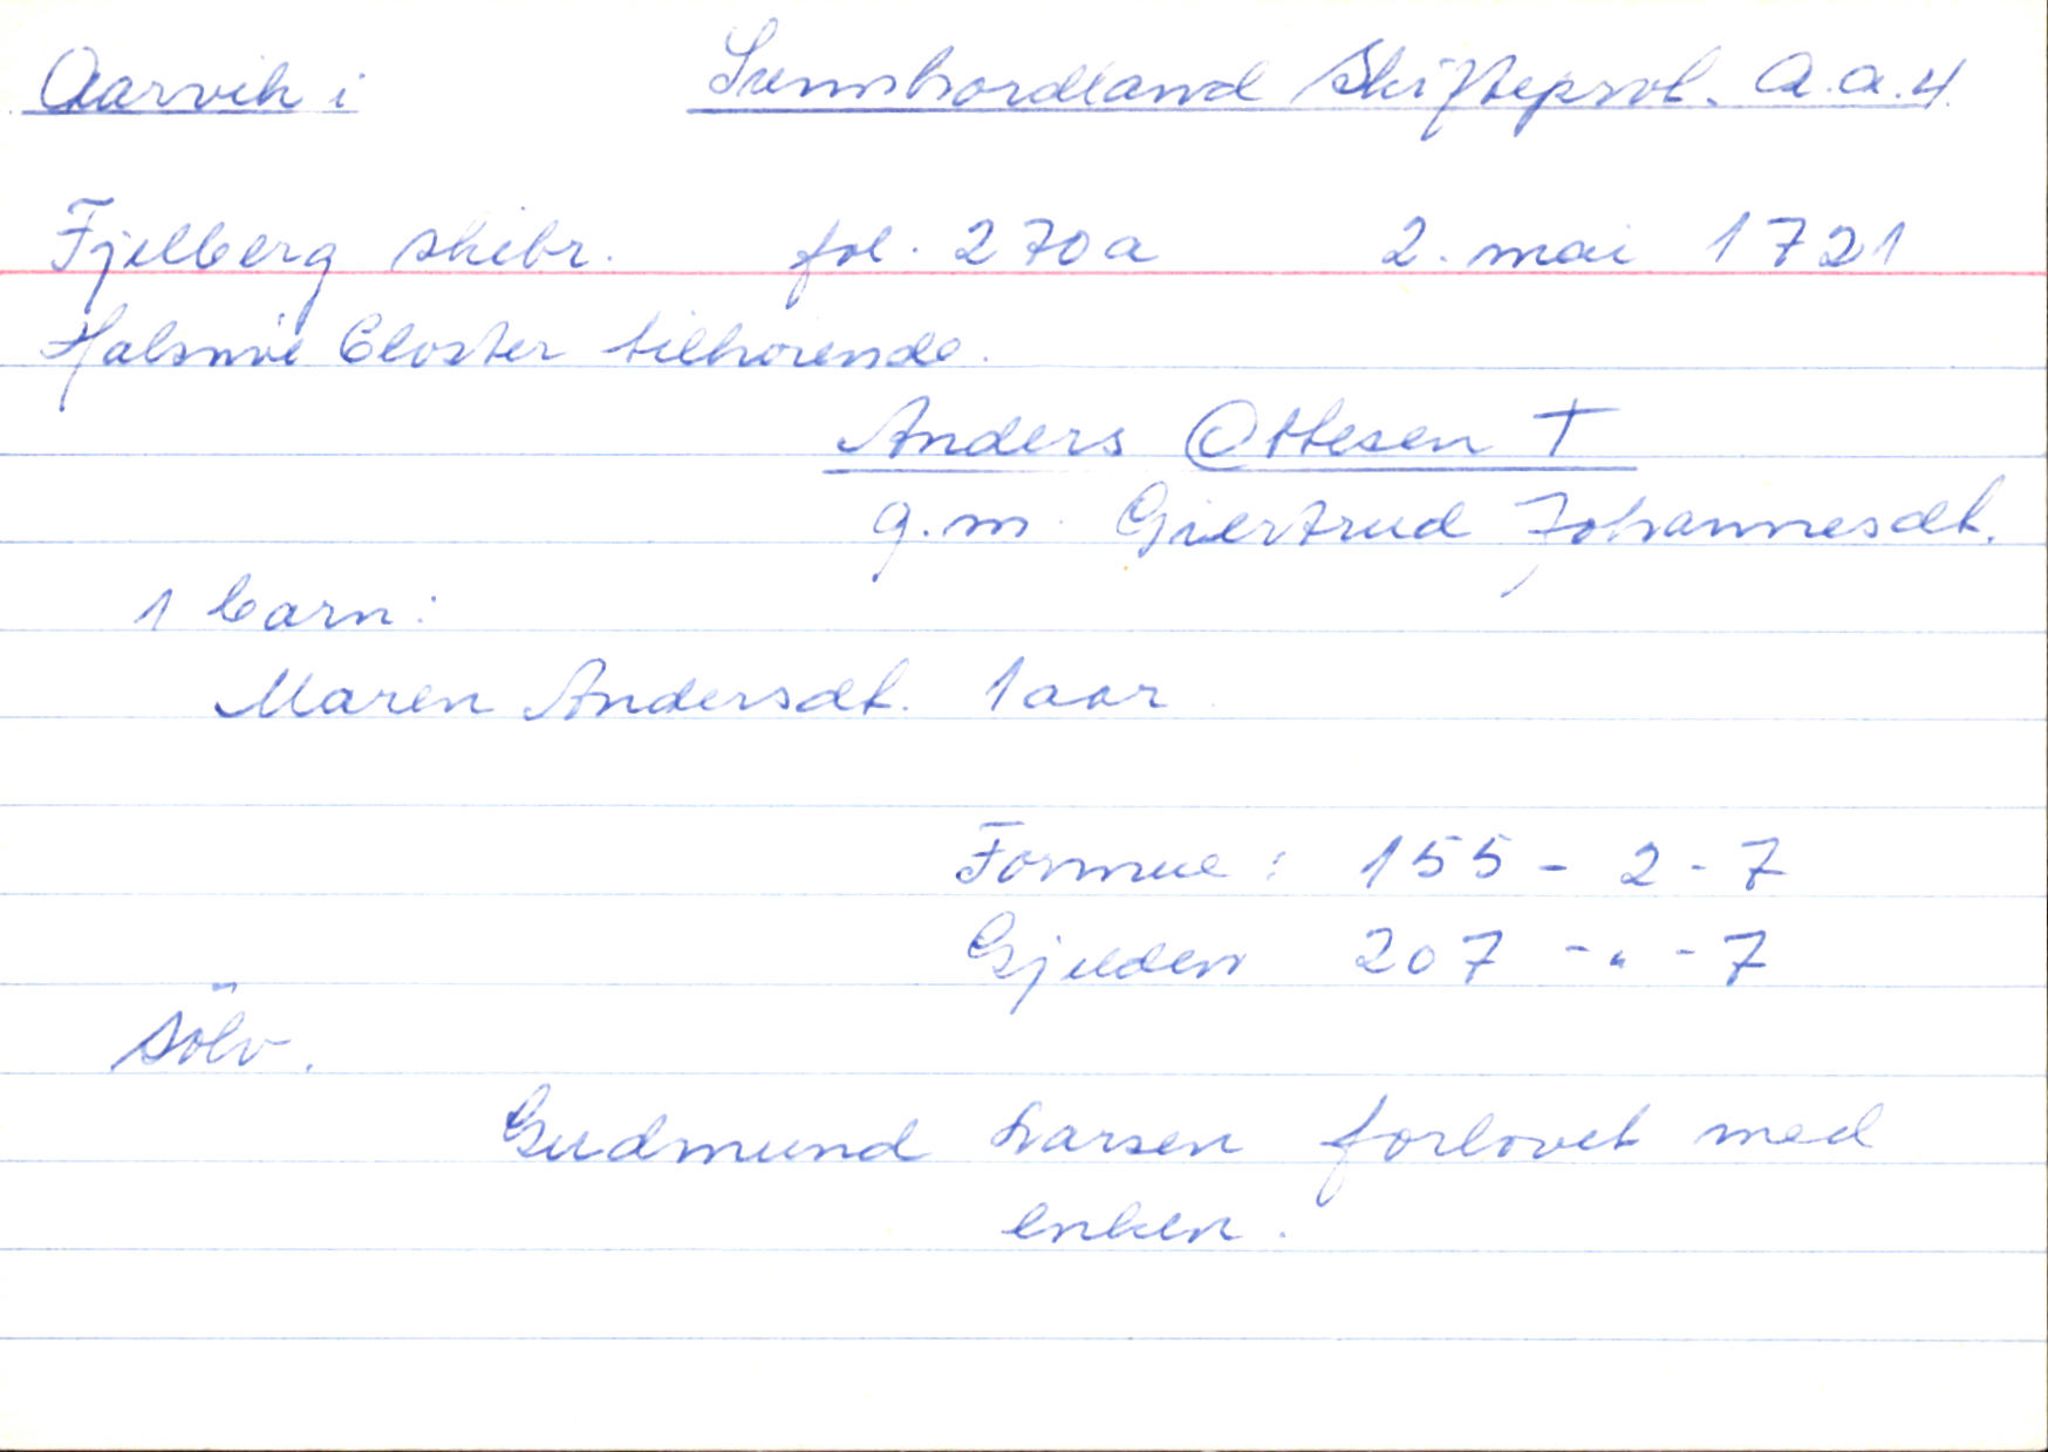 Aarvik i Sunnhordland Skifteprot. A.a.4.
Fjelberg skibr. fol. 270a 2. mai 1721
Halsnöe Closter tilhörende.
Anders Ottesen †
g.m. Giertrud Johannesdt.
1 barn:
Maren Andersdt. 1 aar
Formue: 155 - 2 - 7
Gjelden 207 - " - 7
Sölv.
Gudmund Larsen forlovet med
enken.